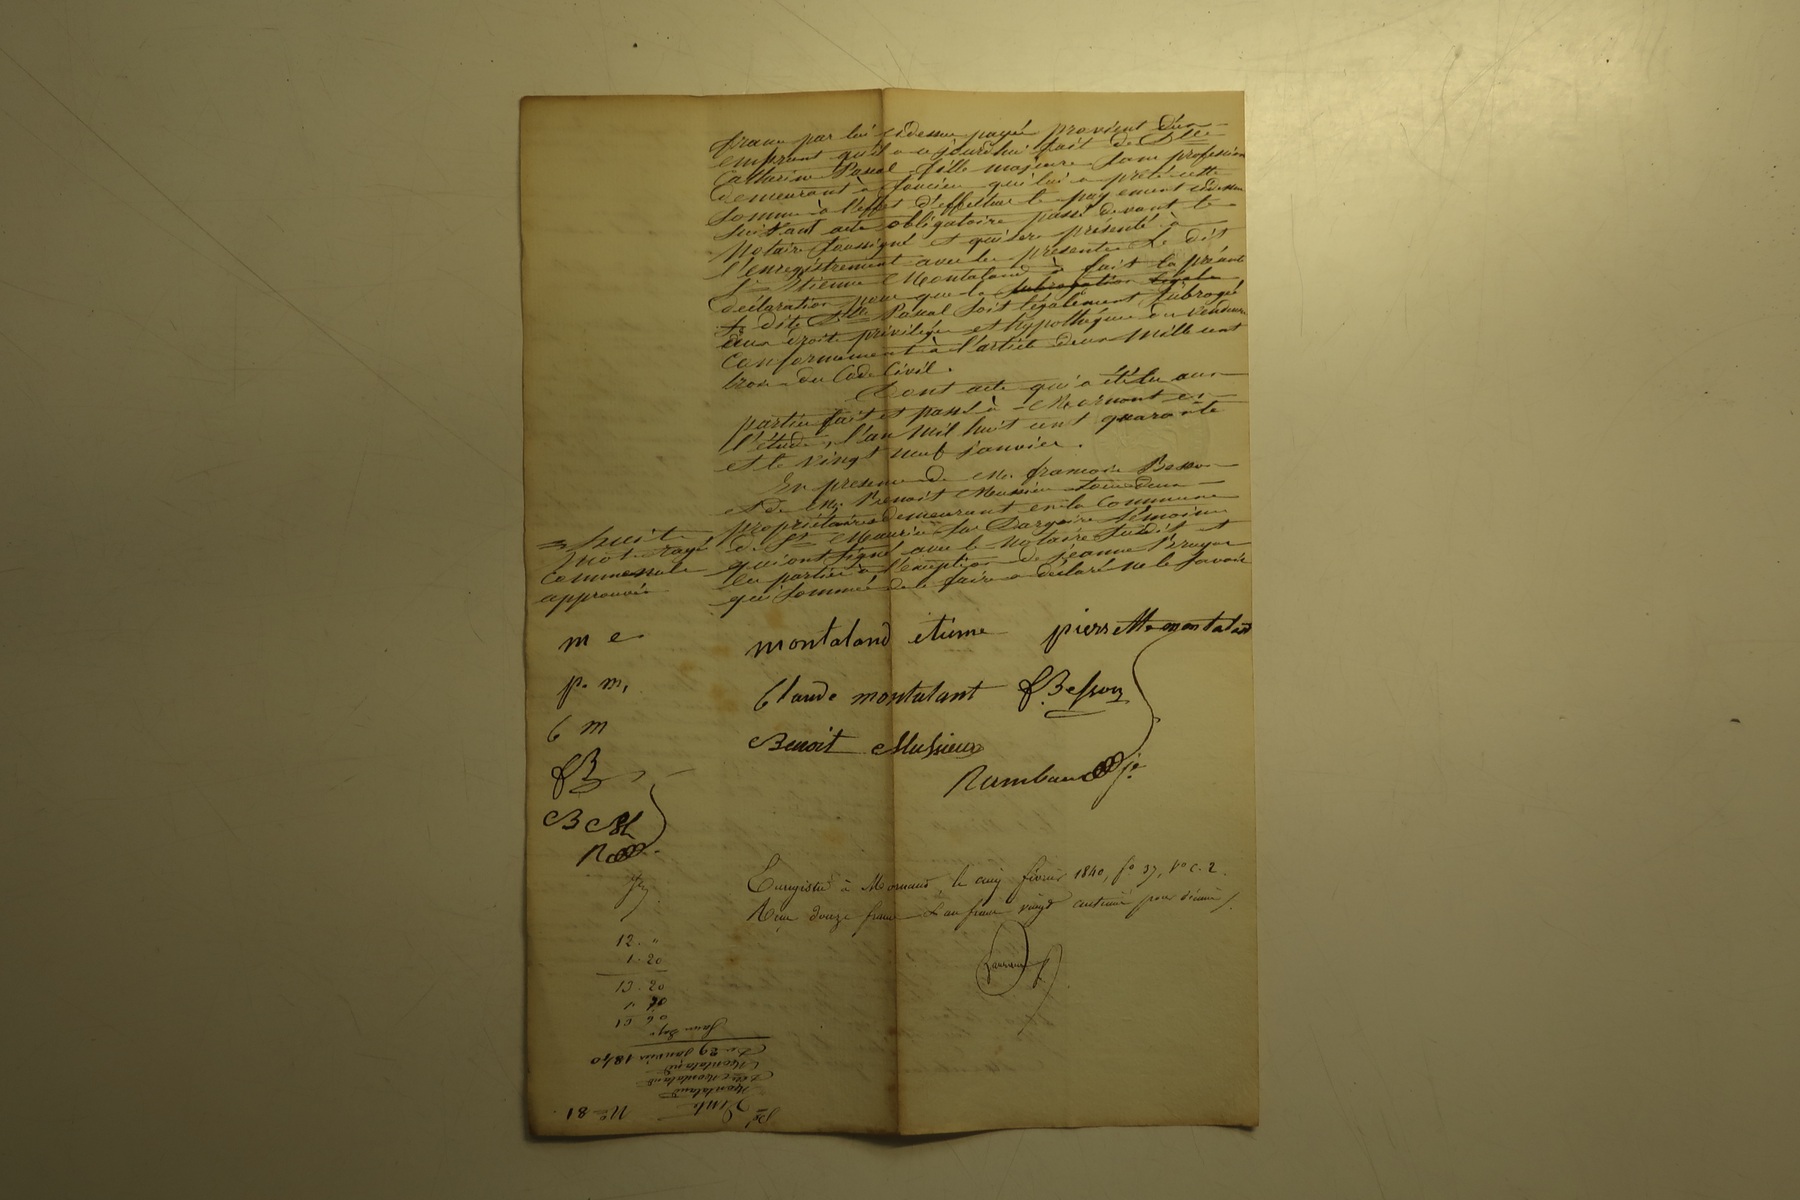 francs par lui cidessus payée provient d'un
emprunt qu'il a ce jourdhui fait de Dlle
Catherine Pascal fille majeure sans profession
demeurant à qui lui a prêté cette
somme à l'effet d'effectuer le payement cidessus
suivant acte obligatoire passé devant le
Notaire soussigné et qui sera présenté à
l'enregistrement avec les présentes Le dit
Sr Etienne Montaland a fait la présente
déclaration pour que la subrogation légale
dite Dlle Pascal soit légalement subrogée
aux droits privilége et hypothéque du vendeur
conformément à l'article deux mille cent
trois du Code Civil.
Dont acte qui a été lu aux
parties fait et passé à Mornant en
l'étude, l'an mil huit cent quarante
et le vingt neuf janvier.
En presence de Mr françois Besson
et de Mr Benoit Mussieux tous deux
propriétaires demeurant en la commune
de St Maurice sur Dargoire témoins
qui ont signé avec le Notaire susdit et
les parties à l'exception de jeanne
qui sommée de le faire a déclaré ne le savoir
huit
mots rayés
comme nuls
approuvés
m e
p. m.
C m
fB
B M
R
montaland etiene pierrette montaland
Claude montalant f. Besson
Benoit Mussieux
Rambaud je
Enregistré à Mornand, le cinq février 1840, fo 37, Vo c. 2.
Reçu douze francs & un franc vingt centimes pour décime
12. "
1. 20
13. 20
No 81.
Vente
Montaland
à Montaland
Montaland
Du 29 Janvier 1840